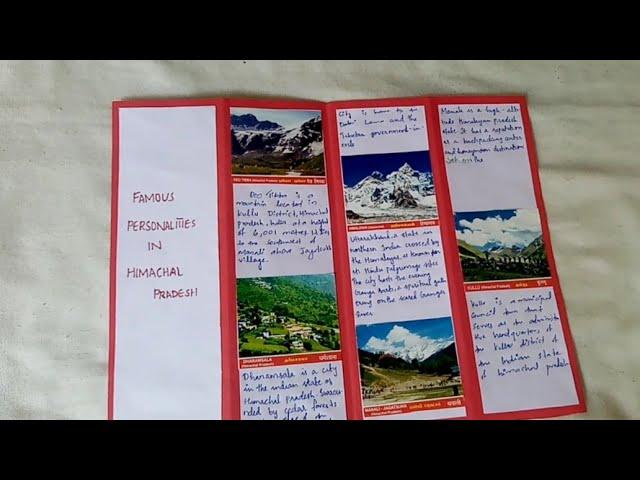 FAMOUS
PERSONALITIES
IN
HIMACHAL
PRADESH
DEO TIBBA (Himachal Pradesh)
Deo Tibba is a
mountain located in
Kullu District, Himachal
pradesh, India at a height
of 6,001 metres. It lies
to the southwest of
Manali above Jagatsukh
village.
DHARAMSALA
(Himachal Pradesh)
Dharamsala is a city
in the indian state of
Himachal Pradesh. Surroun
ded by cedar forests
City is home to the
Lama and the
Tibetan government-in-
exile
HIMALAYAS हिमालय
Uttarakhand, a state in
northern India crossed by
the Himalayas, is known for
its Hindu pilgrimage sites
The city hosts the evening
Ganga Aarti, a spiritual gathe
ring on the sacred Ganges
River.
MANALI - JAGATSUKH
(Himachal Pradesh) मनाली
Manali is a high-alti
tude Himalayan Pradesh
state. It has a reputation
as a backpacking center
and honeymoon destination
KULLU (Himachal Pradesh) कुल्लू
Kullu is a municipal
Council town that
serves as the administra
tive headquarters of
the Kullu district of
the Indian State
of himachal pradesh